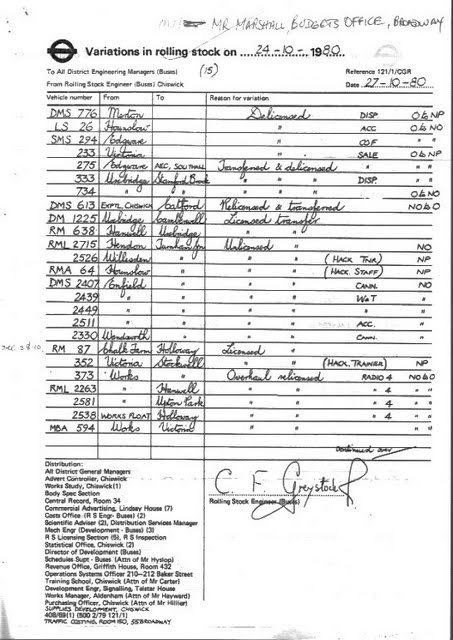 MR MARSHALL, BUDGETS OFFICE, BROADWAY
Variations in rolling stock on 24-10-1980
To All District Engineering Managers (Buses) (15) Reference 121/1/CGR
From Rolling Stock Engineer (Buses) Chiswick Date 27-10-80
Vehicle number From To Reason for variation
DMS 776 Merton Delicensed DISP. O to NP
LS 26 Hounslow " ACC O to NO
SMS 294 Edgware " COF " "
233 Victoria " SALE O to NP
275 Edgware AEC, SOUTHALL Transferred & delicensed " "
333 Uxbridge Stamford Brook " " DISP. "
734 " " " " O to NO
DMS 613 EXPTL, CHISWICK Catford Relicensed & transferred NO to O
DM 1225 Uxbridge Camberwell Licensed transfer
RM 638 Hanwell Uxbridge " "
RML 2715 Hendon Turnham Gn Unlicensed " NO
2526 Willesden " " " (HACK TNR) NP
RMA 64 Hounslow " " " (HACK. STAFF) NP
DMS 2407 Enfield " " " CANN. NO
2439 " " " " W&T "
2449 " " " " " "
2511 " " " " ACC. "
2330 Wandsworth " " " CANN. "
RM 87 Chalk Farm Holloway Licensed "
352 Victoria Stockwell " " (HACK, TRAINER) NP
373 Works " Overhaul relicensed RADIO 4 NO to O
RML 2263 " Hanwell " " " 4 " "
2581 " Upton Park " " " 4 " "
2538 WORKS FLOAT Holloway " " " 4 " "
MBA 594 Works Victoria " " " "
continued over
Distribution:
All District General Managers
Advert Controller, Chiswick
Works Study, Chiswick (1)
Body Spec Section
Central Record, Room 34
Commercial Advertising, Lindsey House (7)
Costs Office (R S Engr- Buses) (2)
Scientific Adviser (2), Distribution Services Manager
Mech Engr (Development - Buses) (3)
R S Licensing Section (5), R S Inspection
Statistical Office, Chiswick (2)
Director of Development (Buses)
Schedules Supt - Buses (Attn of Mr Hyslop)
Revenue Office, Griffith House, Room 432
Operations Systems Officer 210-212 Baker Street
Training School, Chiswick (Attn of Mr Carter)
Development Engr, Signalling, Telstar House
Works Manager, Aldenham (Attn of Mr Hayward)
Purchasing Officer, Chiswick (Attn of Mr Hillier)
SUPPLIES DEVELOPMENT, CHISWICK
408/69(1) (500 2/79 121/1)
TRAFFIC COSTING, ROOM 150, 55 BROADWAY
C F Greystock
Rolling Stock Engineer (Buses)